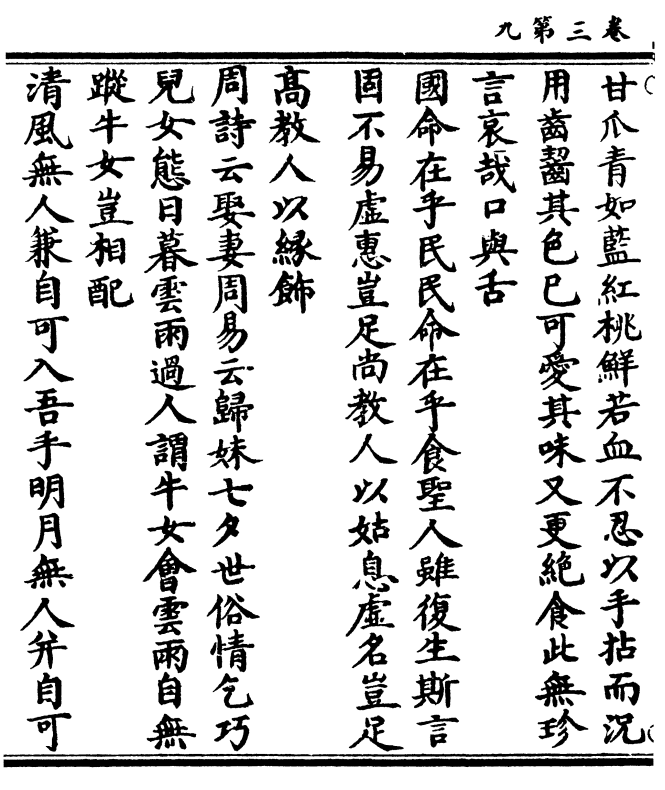 卷三第九
甘爪青如藍紅桃鮮若血不忍以手拈而況
用齒齧其色已可愛其味又更絕食此無珍
言哀哉口與舌
國命在乎民民命在乎食聖人雖復生斯言
固不易虛惠豈足尚教人以姑息虛名豈足
高教人以緣飾
周詩云娶妻周易云歸妹七夕世俗情乞巧
兒女態日暮雲雨過人謂牛女會雲雨自無
蹤牛女豈相配
清風無人兼自可入吾手明月無人并自可